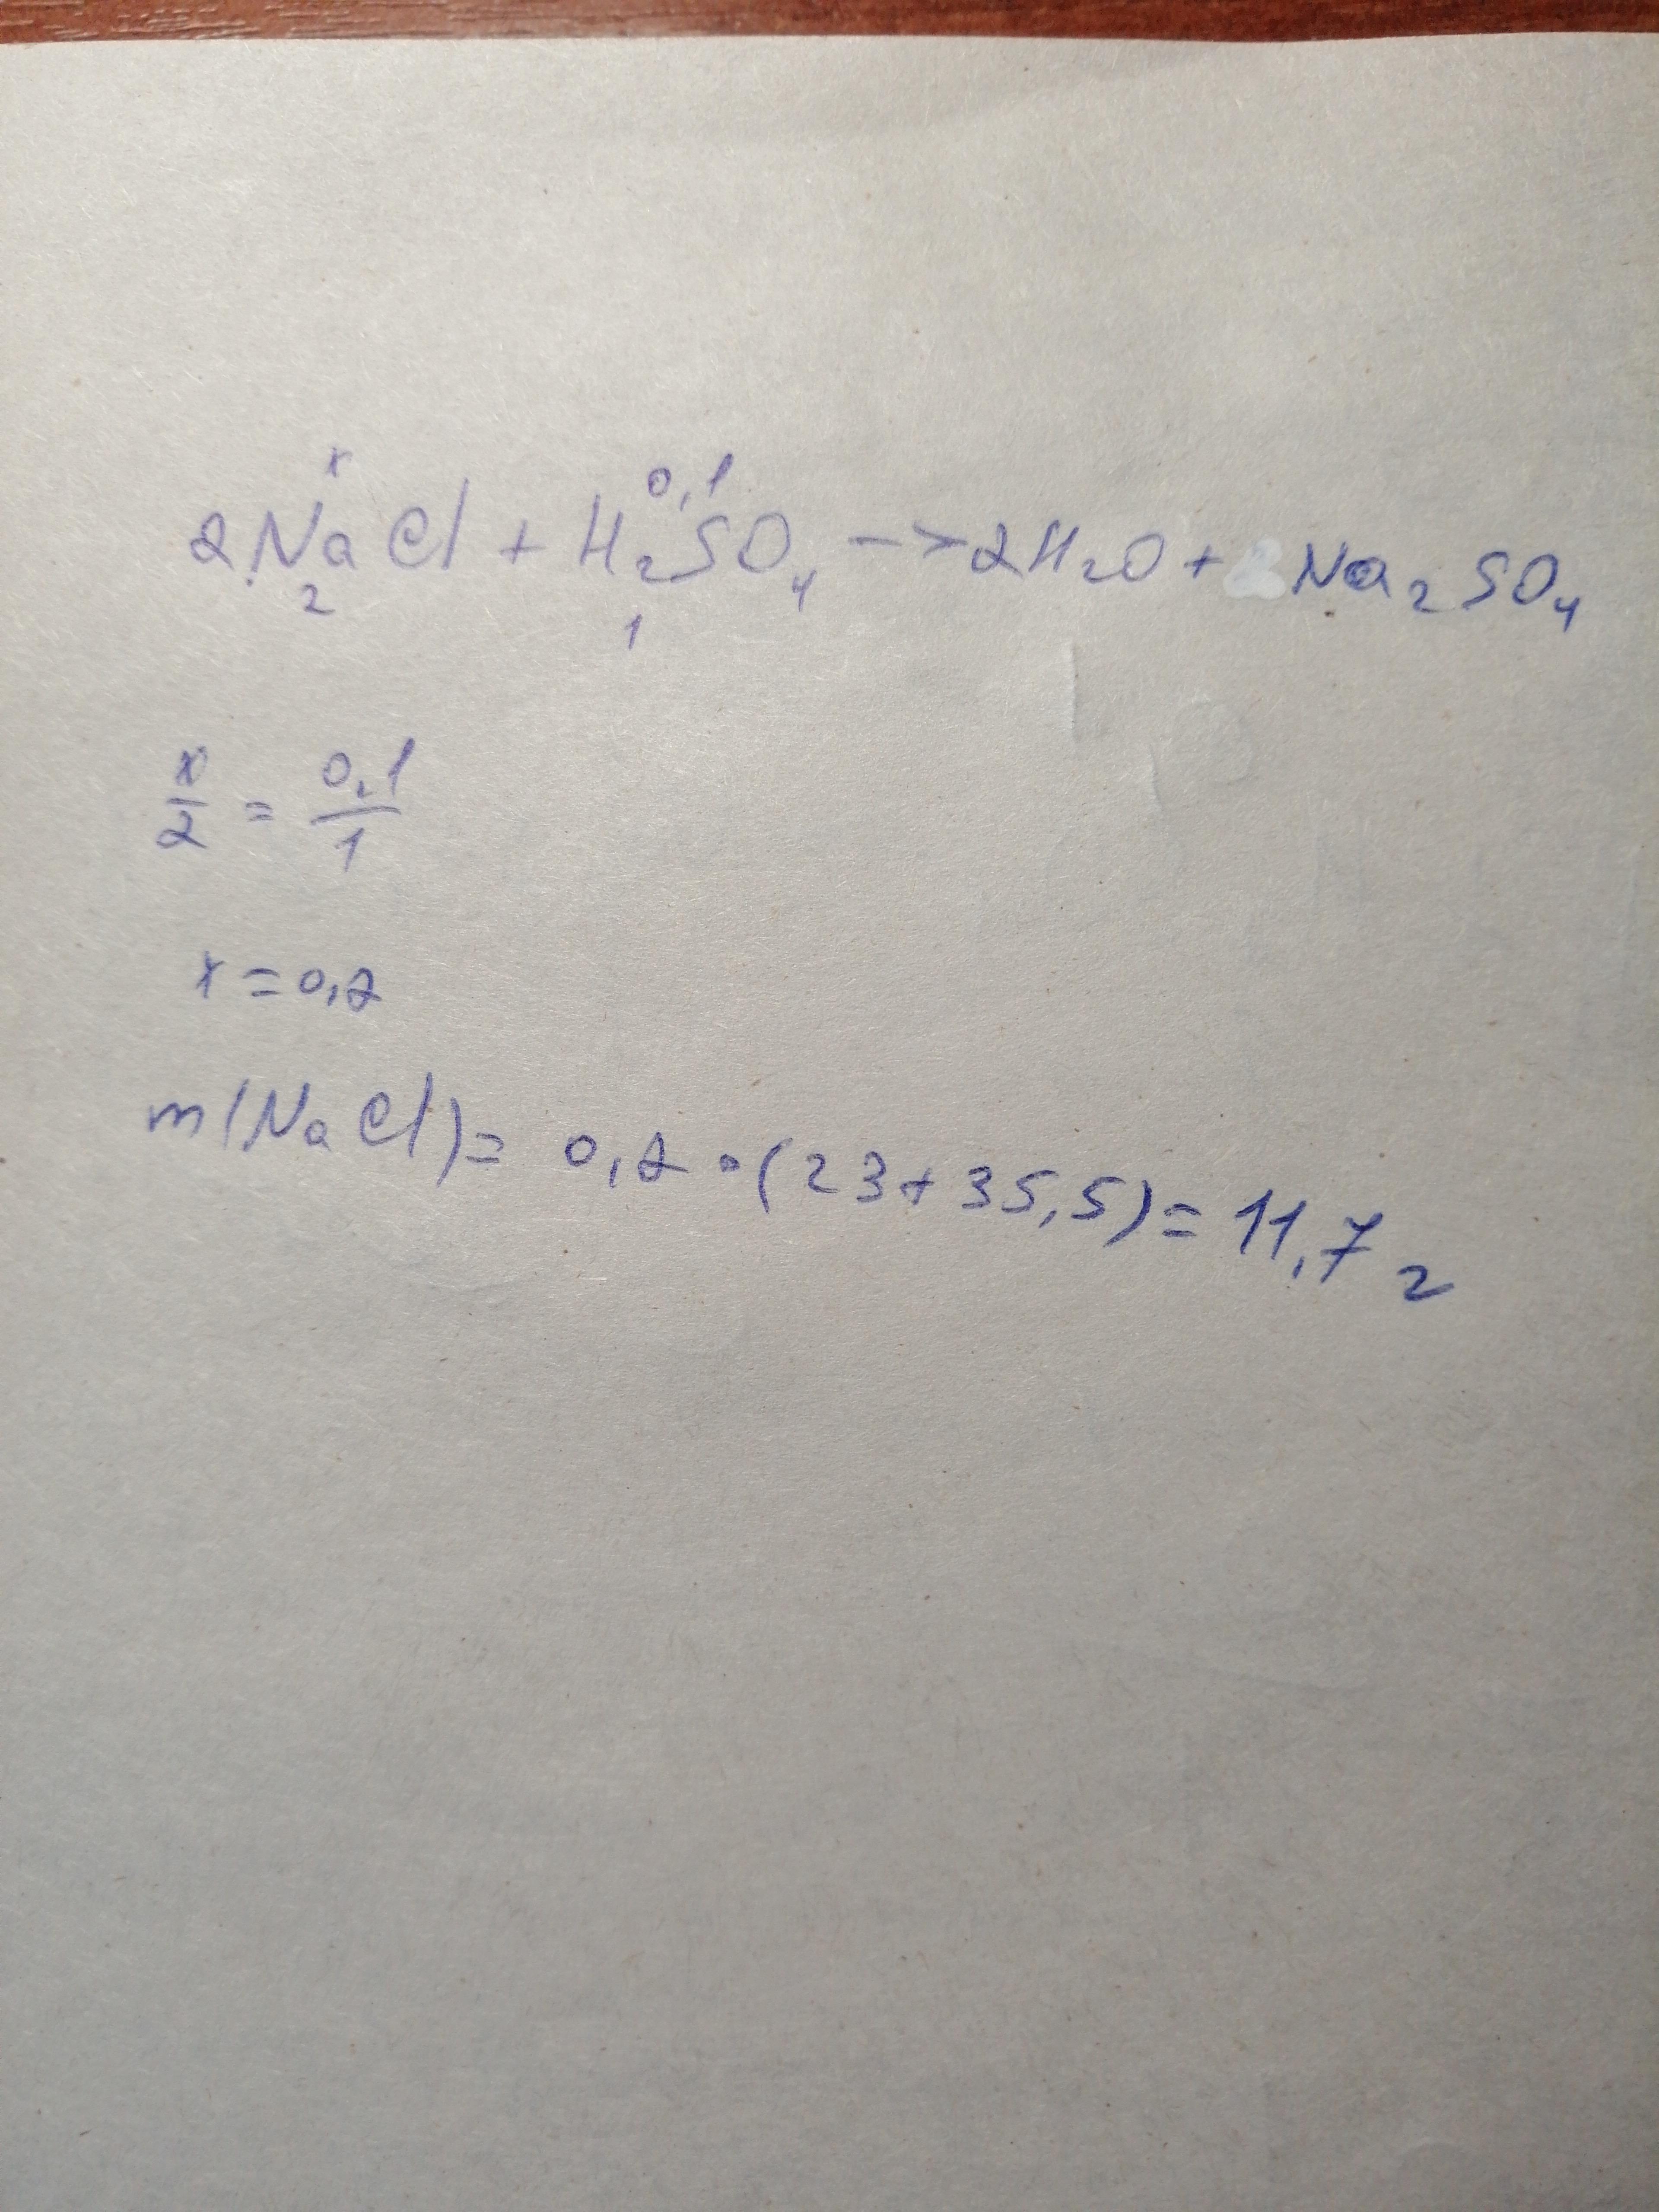 x 0,1
2NaCl + H₂SO₄ –> 2H₂O + Na₂SO₄
2 1
x/2 = 0,1/1
x = 0,2
m(NaCl) = 0,2 · (23 + 35,5) = 11,7 г